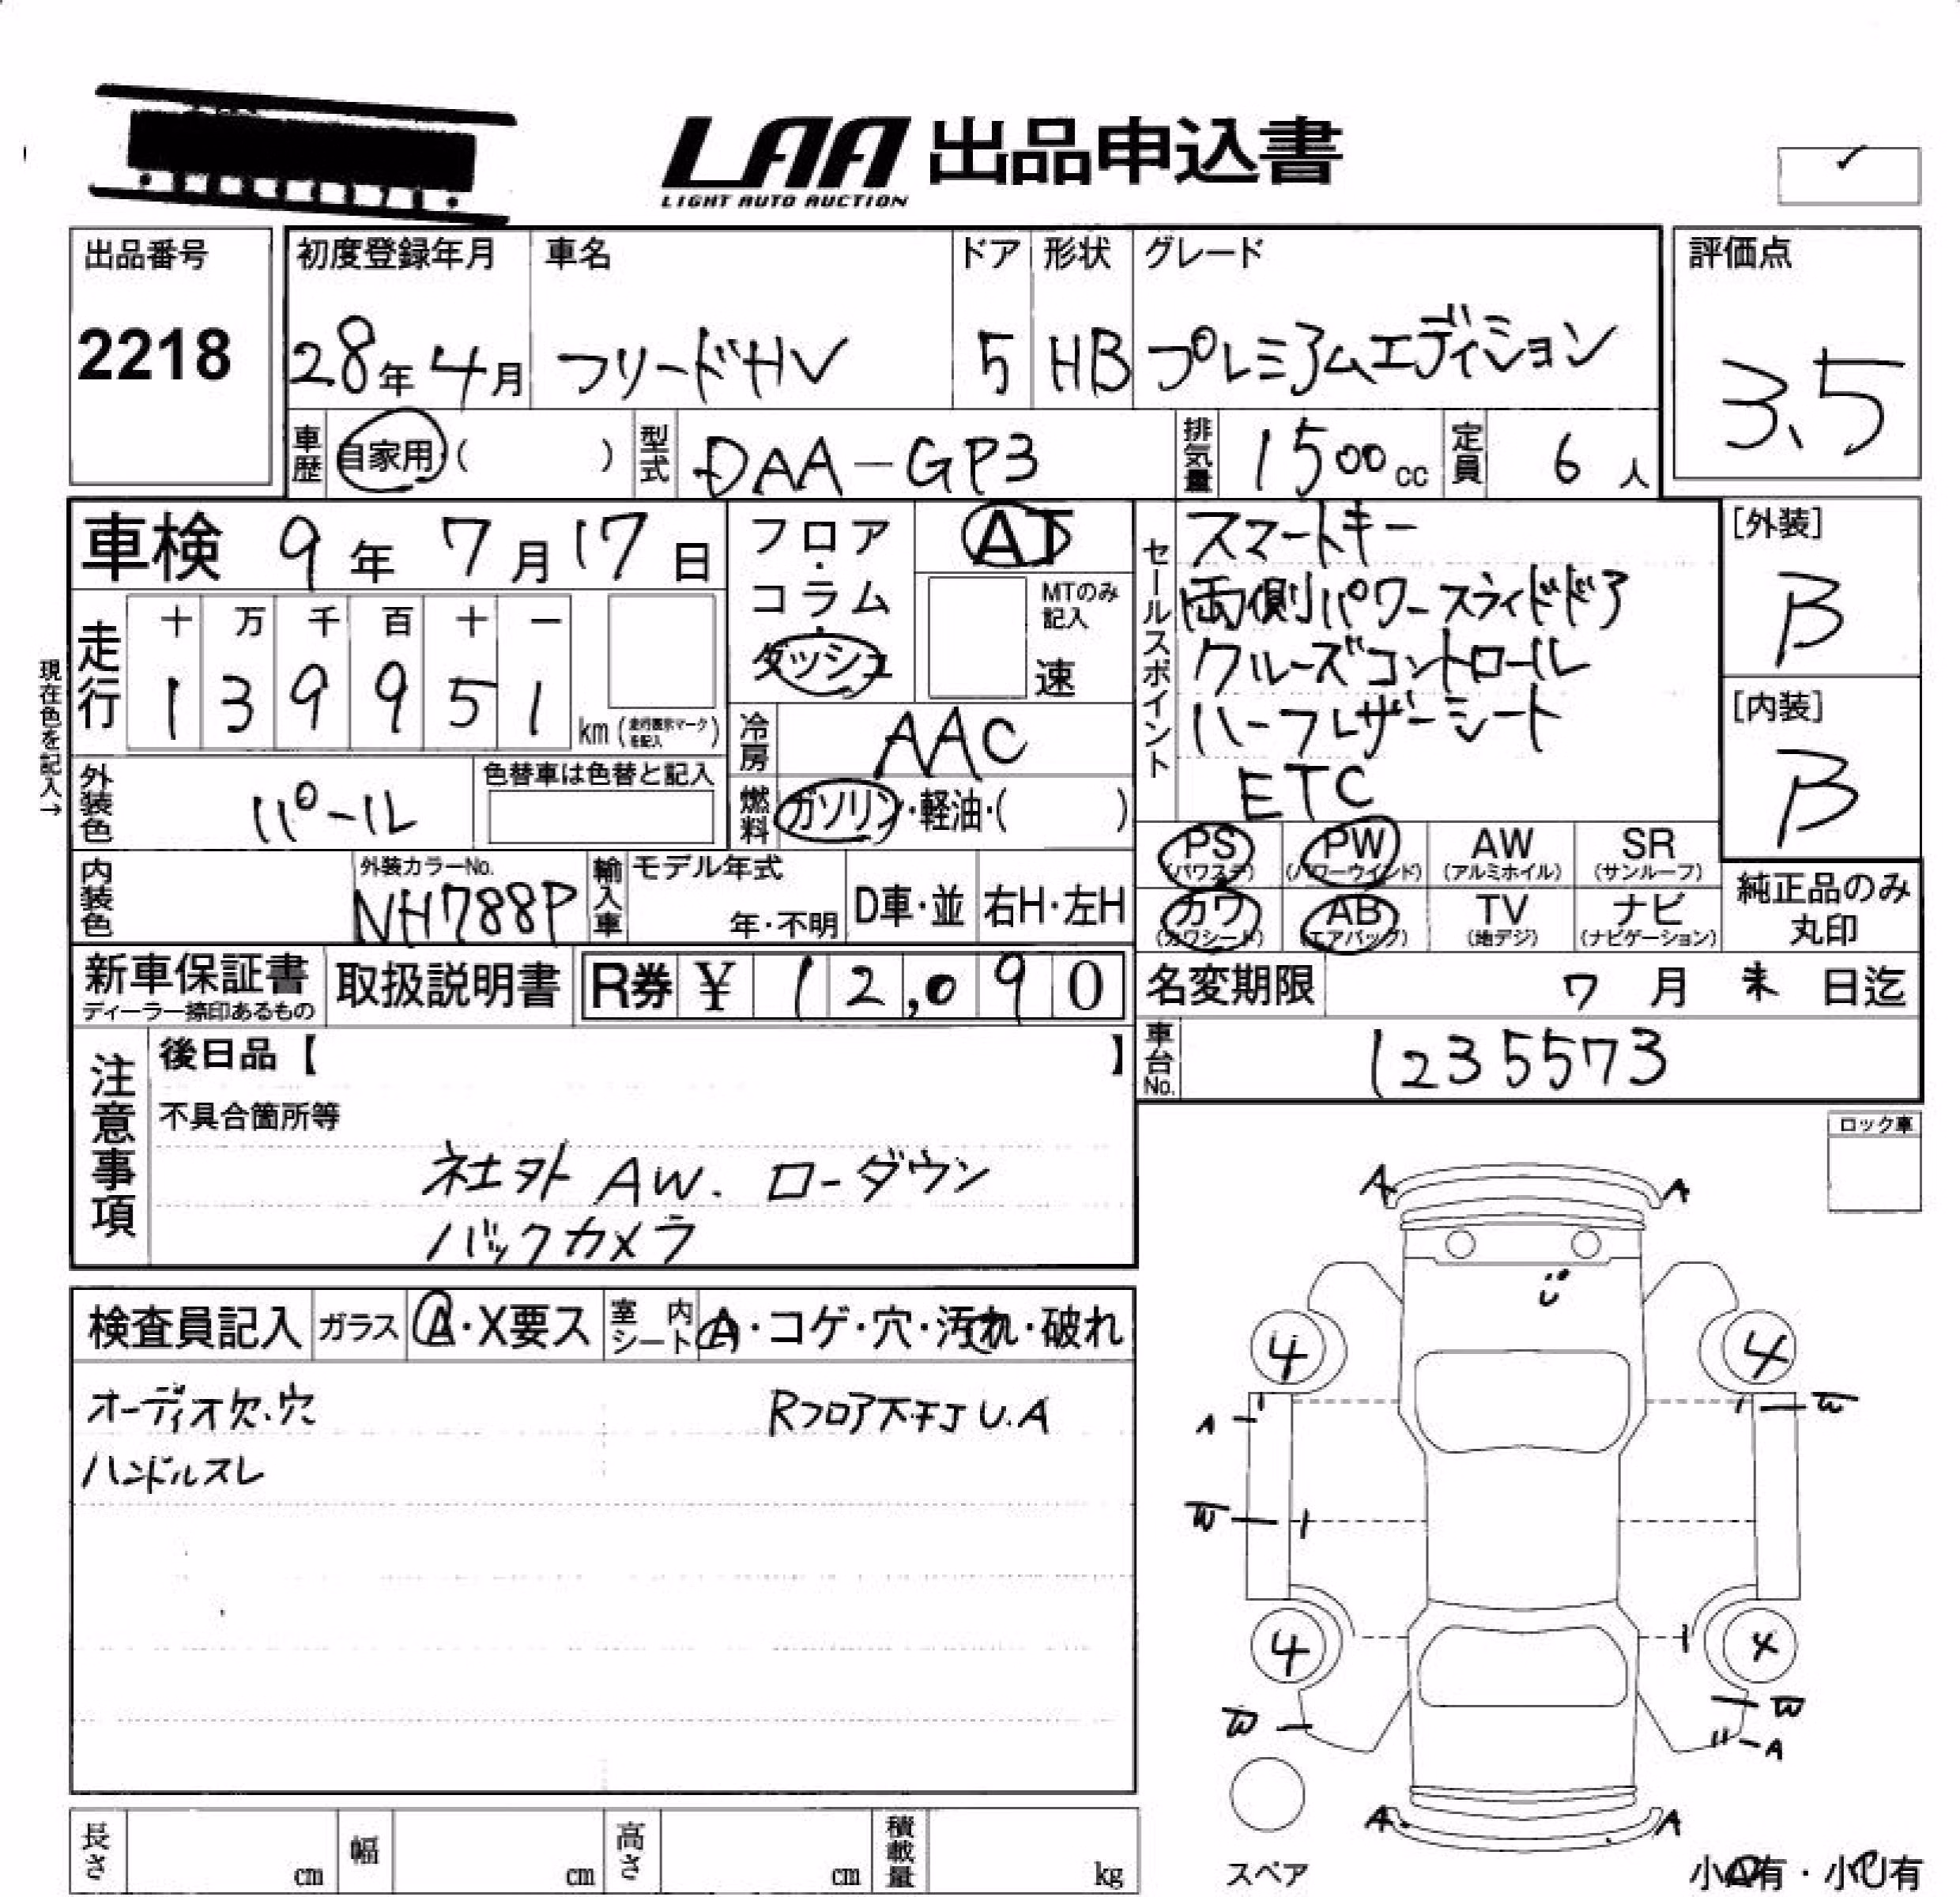 LAA 出品申込書
LIGHT AUTO AUCTION
出品番号
2218
初度登録年月
28年4月
車名
フリードHV
ドア
5
形状
HB
グレード
プレミアムエディション
評価点
3.5
車歴
自家用( )
型式
DAA-GP3
排気量
1500cc
定員
6人
車検 9年 7月17日
フロア・コラム・ダッシュ
AT
MTのみ記入
速
セールスポイント
スマートキー
両側パワースライドドア
クルーズコントロール
ハーフレザーシート
ETC
[外装]
B
[内装]
B
現在色を記入→
走行
十 万 千 百 十 一
1 3 9 9 5 1
km(走行表示マークを記入)
冷房
AAC
外装色
パール
色替車は色替と記入
燃料
ガソリン・軽油・( )
PS
(パワステ)
PW
(パワーウインド)
AW
(アルミホイル)
SR
(サンルーフ)
カワ
(カワシート)
AB
(エアバッグ)
TV
(地デジ)
ナビ
(ナビゲーション)
純正品のみ
丸印
内装色
外装カラーNo.
NH788P
輸入車
モデル年式
年・不明
D車・並
右H・左H
新車保証書
ディーラー捺印あるもの
取扱説明書
R券 ¥ 12,090
名変期限
7月末日迄
車台No.
1235573
注意事項
後日品【 】
不具合箇所等
社外 AW. ローダウン
バックカメラ
ロック車
検査員記入
ガラス
A・X要ス
室内シート
A・コゲ・穴・汚れ・破れ
オーディオ欠.穴
Rフロア下キJ U.A
ハンドルスレ
A A
U
4 4
A W
W
4 4
W W
A
A A
スペア
小A有・小U有
長さ
cm
幅
cm
高さ
cm
積載量
kg